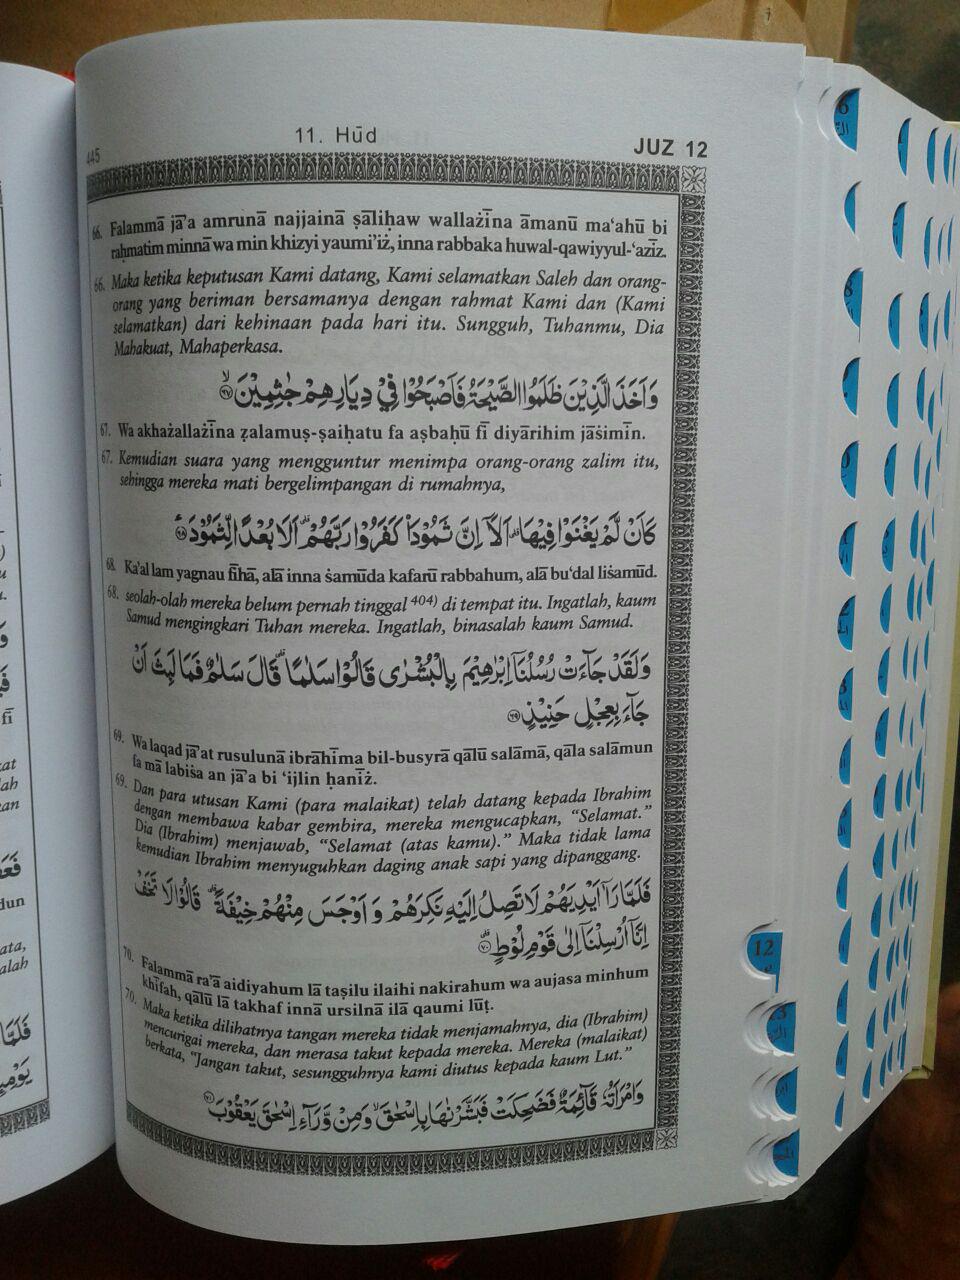 445
11. Hūd
JUZ 12
66. Falammā jā'a amrunā najjainā ṣāliḥaw wallażīna āmanū ma‘ahū bi
raḥmatim minnā wa min khizyi yaumi'iż, inna rabbaka huwal-qawiyyul-‘azīz.
66. Maka ketika keputusan Kami datang, Kami selamatkan Saleh dan orang-
orang yang beriman bersamanya dengan rahmat Kami dan (Kami
selamatkan) dari kehinaan pada hari itu. Sungguh, Tuhanmu, Dia
Mahakuat, Mahaperkasa.
وَاَخَذَ الَّذِيْنَ ظَلَمُوا الصَّيْحَةُ فَاَصْبَحُوْا فِيْ دِيَارِهِمْ جٰثِمِيْنَۙ ٦٧
67. Wa akhażallażīna ẓalamuṣ-ṣaiḥatu fa aṣbaḥū fī diyārihim jāṡimīn.
67. Kemudian suara yang mengguntur menimpa orang-orang zalim itu,
sehingga mereka mati bergelimpangan di rumahnya,
كَاَنْ لَّمْ يَغْنَوْا فِيْهَا ۗ اَلَآ اِنَّ ثَمُوْدَا۠ كَفَرُوْا رَبَّهُمْ ۗ اَلَا بُعْدًا لِّثَمُوْدَ ࣖ ٦٨
68. Ka'al lam yagnau fīhā, alā inna ṡamūda kafarū rabbahum, alā bu‘dal liṡamūd.
68. seolah-olah mereka belum pernah tinggal 404) di tempat itu. Ingatlah, kaum
Samud mengingkari Tuhan mereka. Ingatlah, binasalah kaum Samud.
وَلَقَدْ جَاۤءَتْ رُسُلُنَآ اِبْرٰهِيْمَ بِالْبُشْرٰى قَالُوْا سَلٰمًا ۖقَالَ سَلٰمٌ فَمَا لَبِثَ اَنْ
جَاۤءَ بِعِجْلٍ حَنِيْذٍ ٦٩
69. Wa laqad jā'at rusulunā ibrāhīma bil-busyrā qālū salāmā, qāla salāmun
fa mā labiṡa an jā'a bi ‘ijlin ḥanīż.
69. Dan para utusan Kami (para malaikat) telah datang kepada Ibrahim
dengan membawa kabar gembira, mereka mengucapkan, “Selamat.”
Dia (Ibrahim) menjawab, “Selamat (atas kamu).” Maka tidak lama
kemudian Ibrahim menyuguhkan daging anak sapi yang dipanggang.
فَلَمَّا رَآٰ اَيْدِيَهُمْ لَا تَصِلُ اِلَيْهِ نَكِرَهُمْ وَاَوْجَسَ مِنْهُمْ خِيْفَةً ۗ قَالُوْا لَا تَخَفْ
اِنَّآ اُرْسِلْنَآ اِلٰى قَوْمِ لُوْطٍ ۗ ٧٠
70. Falammā ra'ā aidiyahum lā taṣilu ilaihi nakirahum wa aujasa minhum
khīfah, qālū lā takhaf innā ursilnā ilā qaumi lūṭ.
70. Maka ketika dilihatnya tangan mereka tidak menjamahnya, dia (Ibrahim)
mencurigai mereka, dan merasa takut kepada mereka. Mereka (malaikat)
berkata, “Jangan takut, sesungguhnya kami diutus kepada kaum Lut.”
وَامْرَاَتُهٗ قَاۤىِٕمَةٌ فَضَحِكَتْ فَبَشَّرْنٰهَا بِاِسْحٰقَۙ وَمِنْ وَّرَاۤءِ اِسْحٰقَ يَعْقُوْبَ ٧١
12